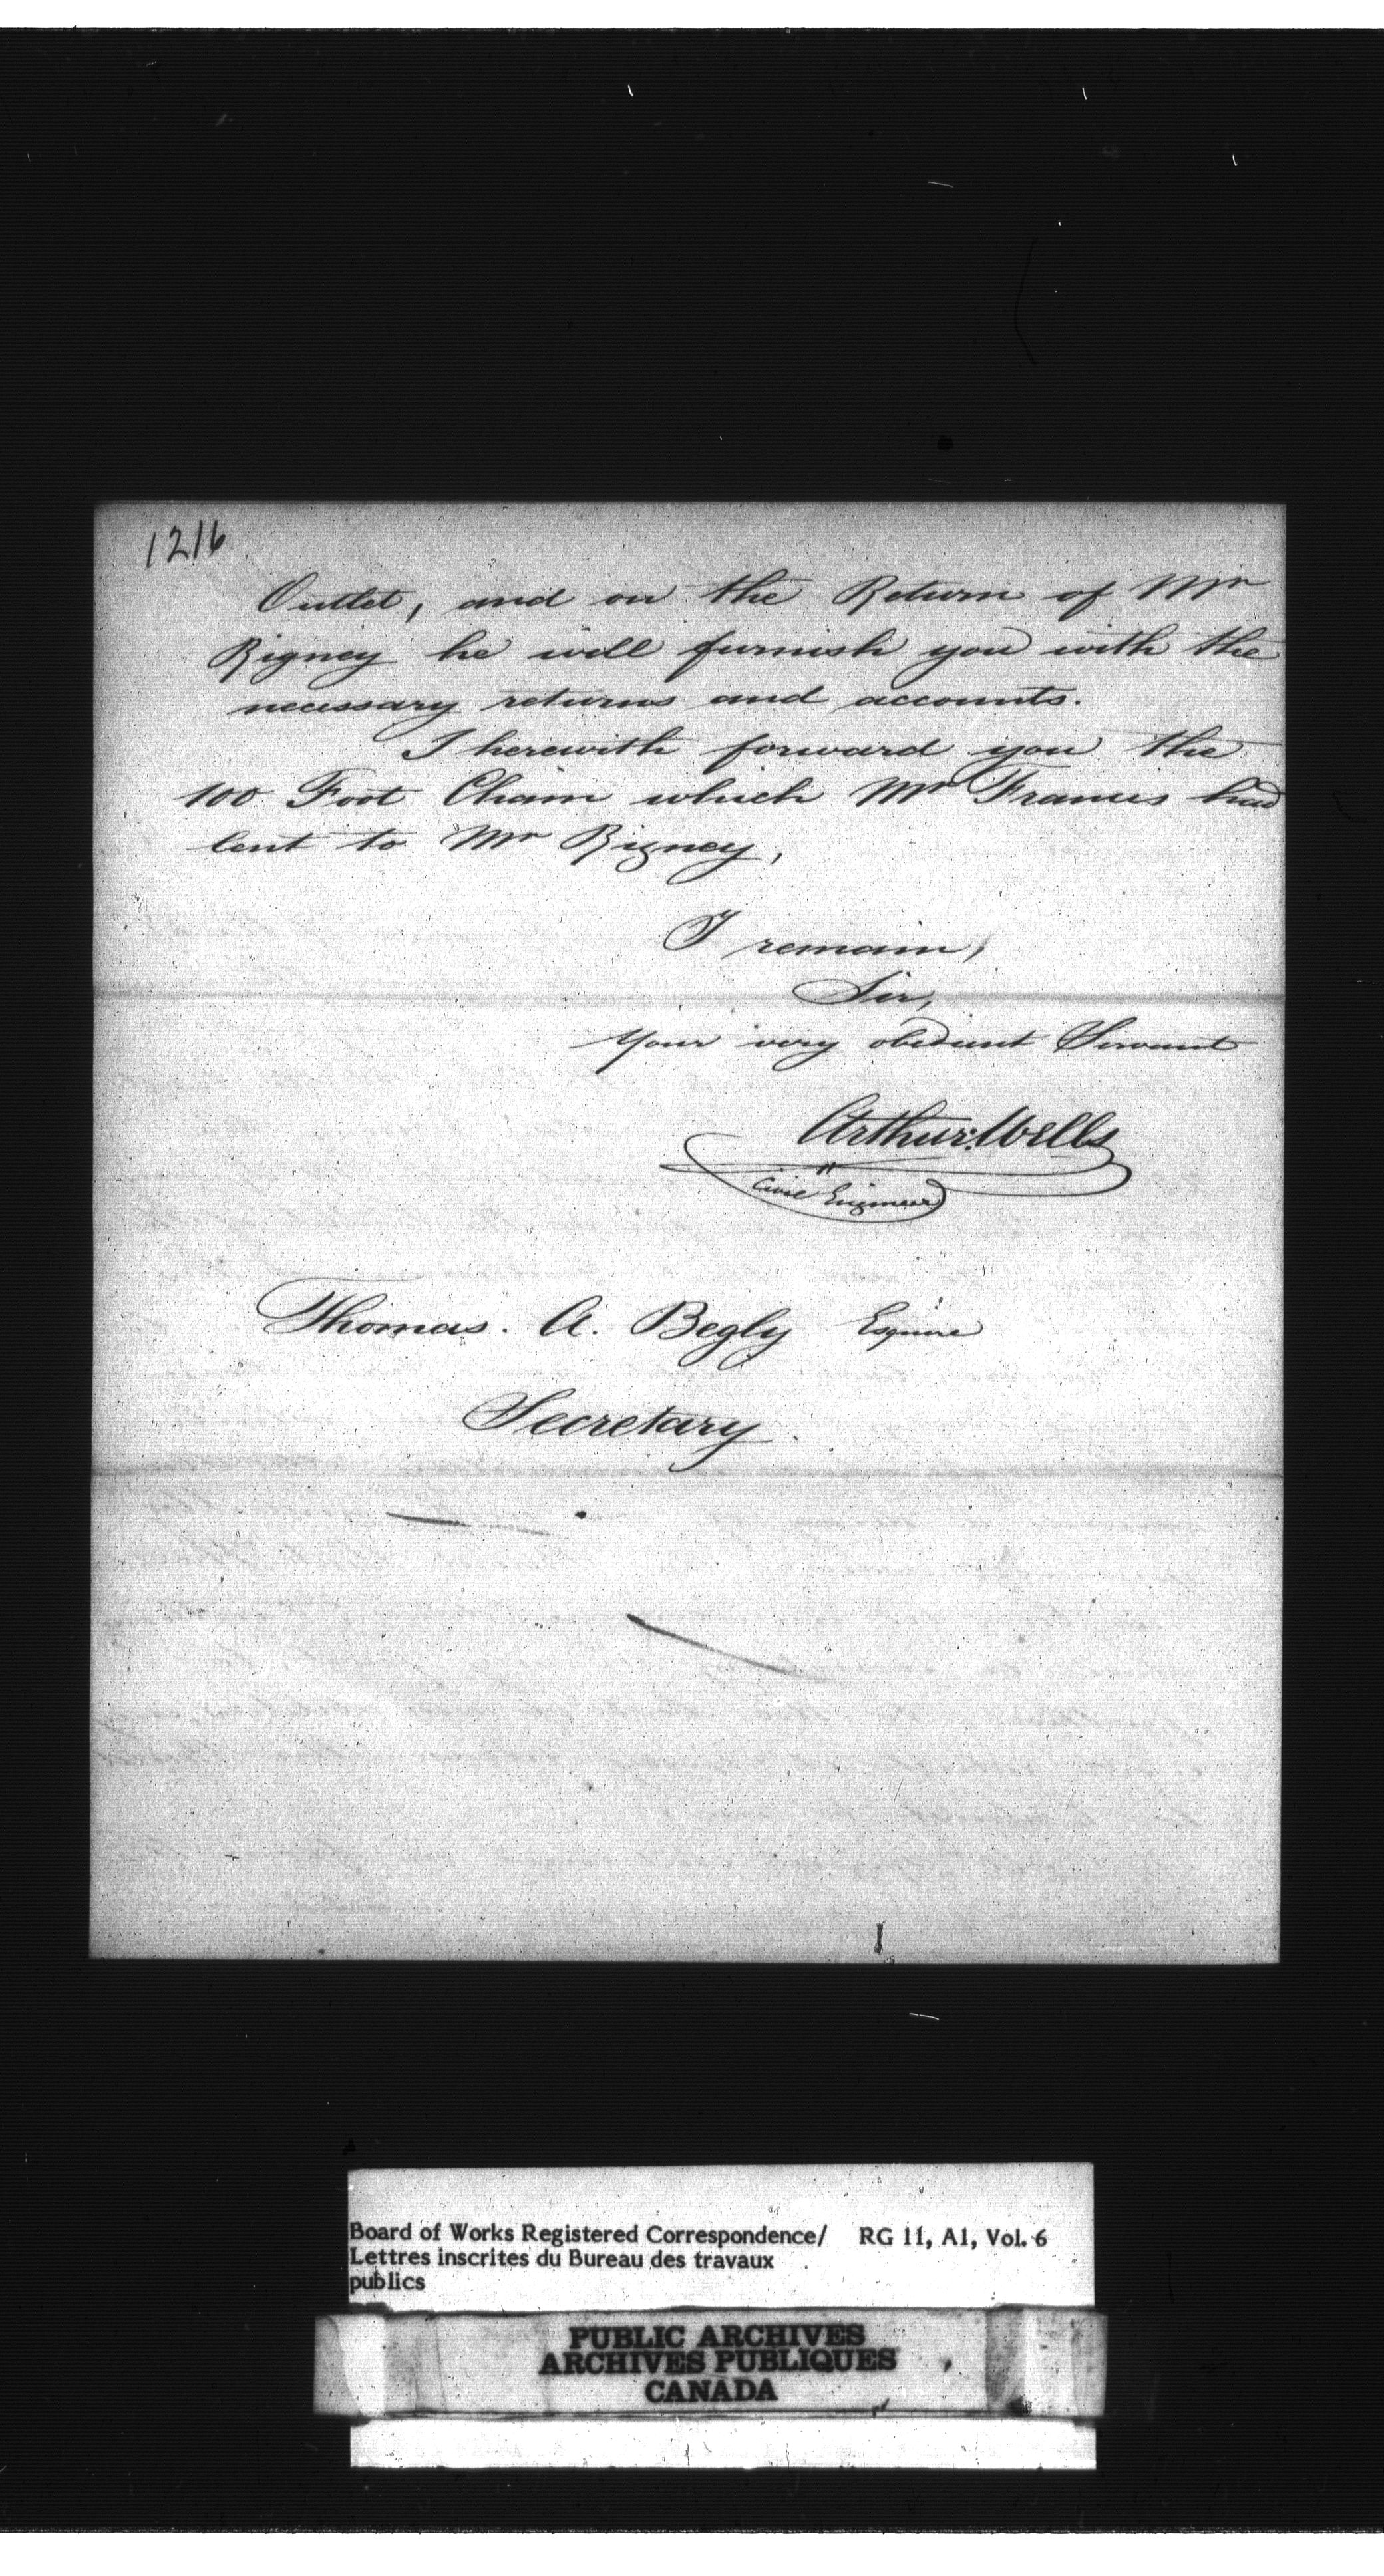 1216
Outlet, and on the Return of Mr
Rigney he will furnish you with the
necessary returns and accounts.
I herewith forward you the
100 Foot Chain which Mr Francis had
lent to Mr Rigney,
I remain,
Sir,
Your very obedient Servant
Arthur Wells
Civil Engineer
Thomas. A. Begly Esquire
Secretary.
Board of Works Registered Correspondence/ RG 11, A1, Vol. 6
Lettres inscrites du Bureau des travaux
publics
PUBLIC ARCHIVES
ARCHIVES PUBLIQUES
CANADA